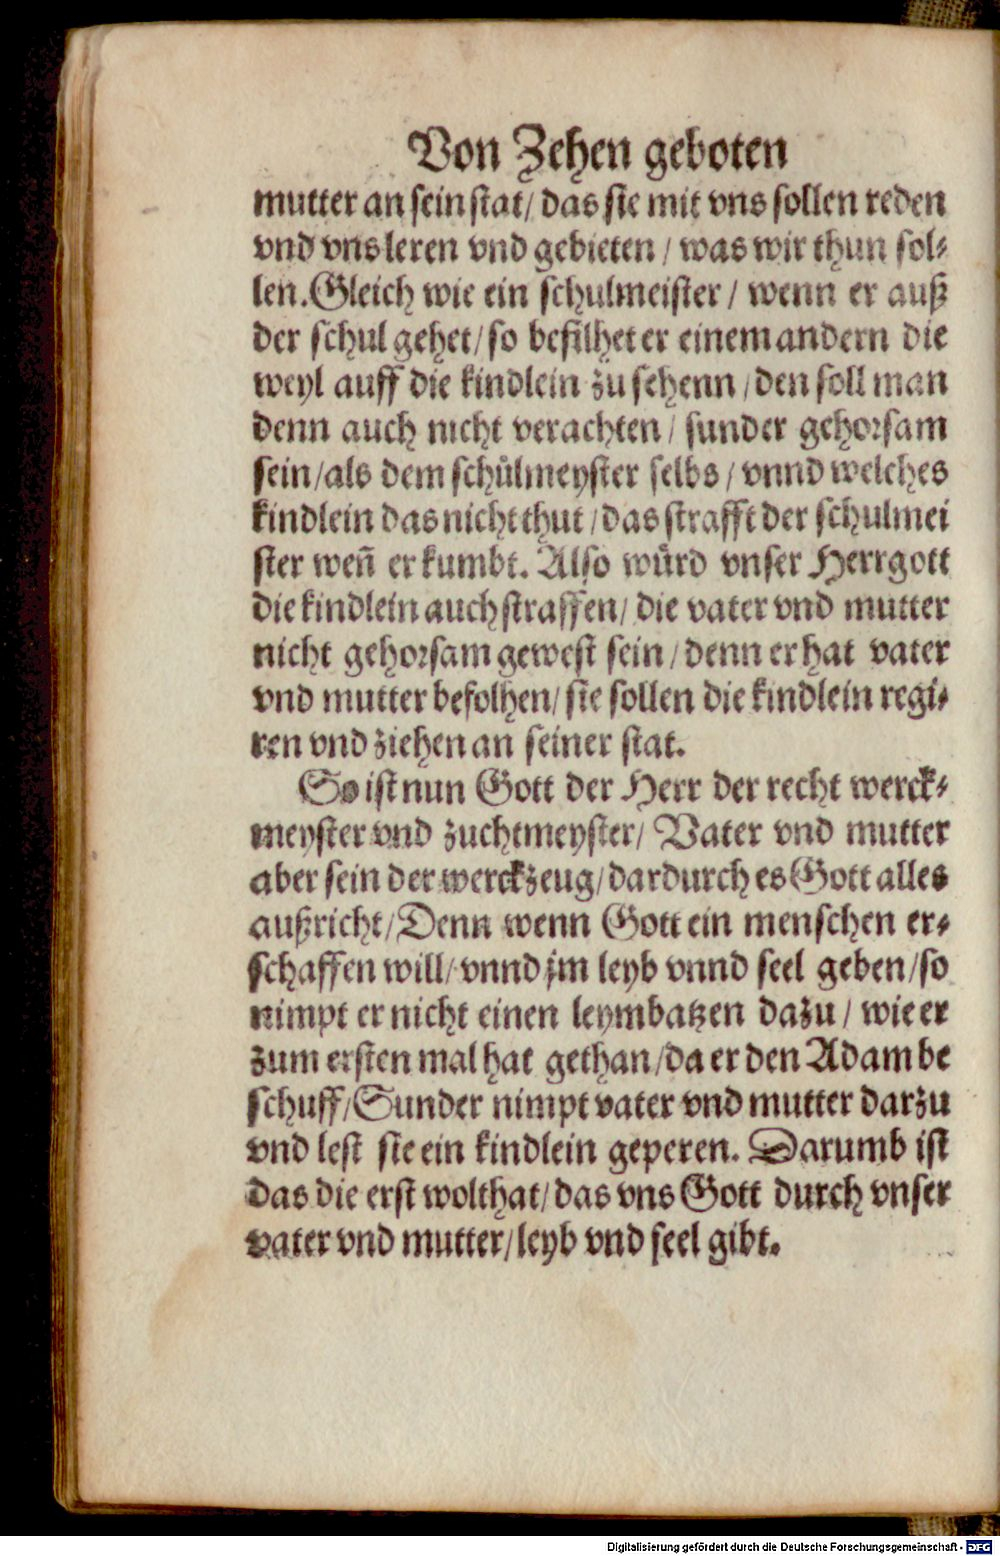 Von Zehen geboten
mutter an sein stat/ das sie mit vns sollen reden
vnd vns leren vnd gebieten / was wir thun sol⸗
len. Gleich wie ein schulmeister / wenn er auß
der schul gehet/ so befilhet er einem andern die
weyl auff die kindlein zu sehenn / den soll man
denn auch nicht verachten / sunder gehorsam
sein/ als dem schůlmeyster selbs / vnnd welches
kindlein das nicht thut / das strafft der schulmei
ster weñ er kumbt. Also würd vnser Herrgott
die kindlein auch straffen/ die vater vnd mutter
nicht gehorsam gewest sein / denn er hat vater
vnd mutter befolhen/ sie sollen die kindlein regi⸗
ren vnd ziehen an seiner stat.
So ist nun Gott der Herr der recht werck⸗
meyster vnd zuchtmeyster/ Vater vnd mutter
aber sein der werckzeug/ dardurch es Gott alles
außricht/ Denn wenn Gott ein menschen er⸗
schaffen will/ vnnd jm leyb vnnd seel geben/ so
nimpt er nicht einen leymbatzen dazu / wie er
zum ersten mal hat gethan/ da er den Adam be
schuff/ Sunder nimpt vater vnd mutter darzu
vnd lest sie ein kindlein geperen. Darumb ist
das die erst wolthat/ das vns Gott durch vnser
vater vnd mutter/ leyb vnd seel gibt.
Digitalisierung gefördert durch die Deutsche Forschungsgemeinschaft - DFG